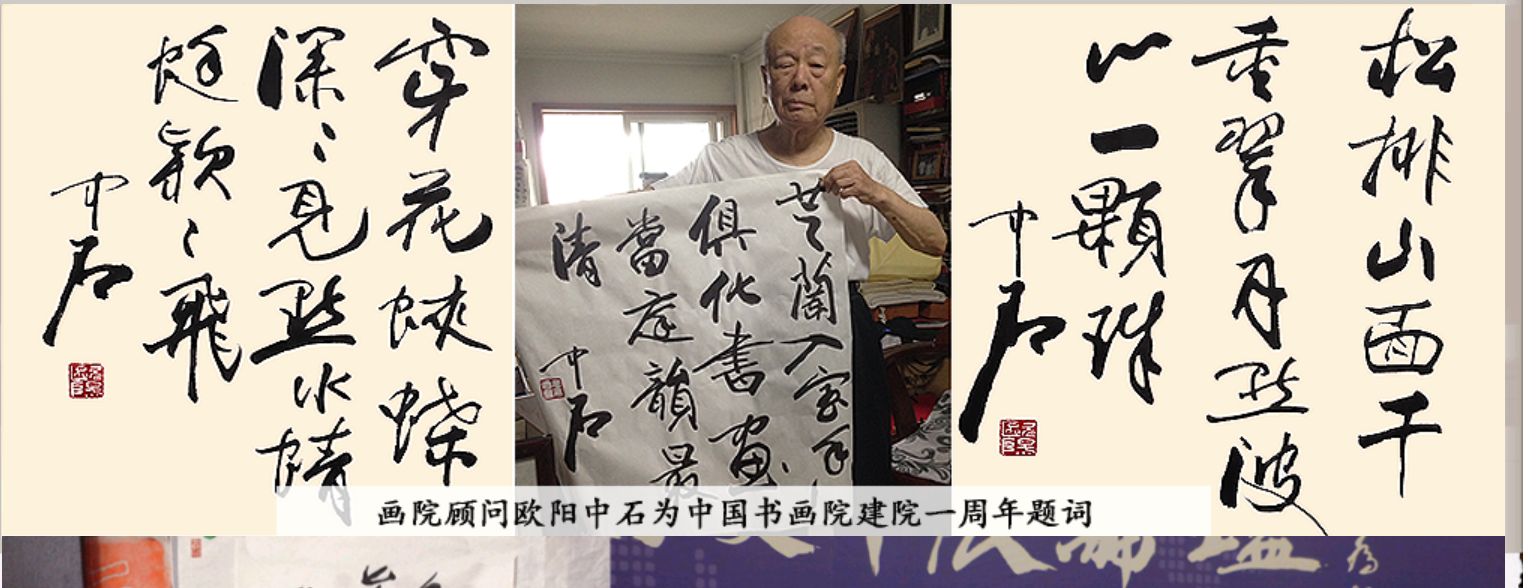 穿花蛺蝶
深々見點水蜻
蜓款々飛
中石
芝蘭入室
俱化書畫
當庭韻最
清
中石
松排山面千
重翠月點波
心一顆珠
中石
画院顾问欧阳中石为中国书画院建院一周年题词